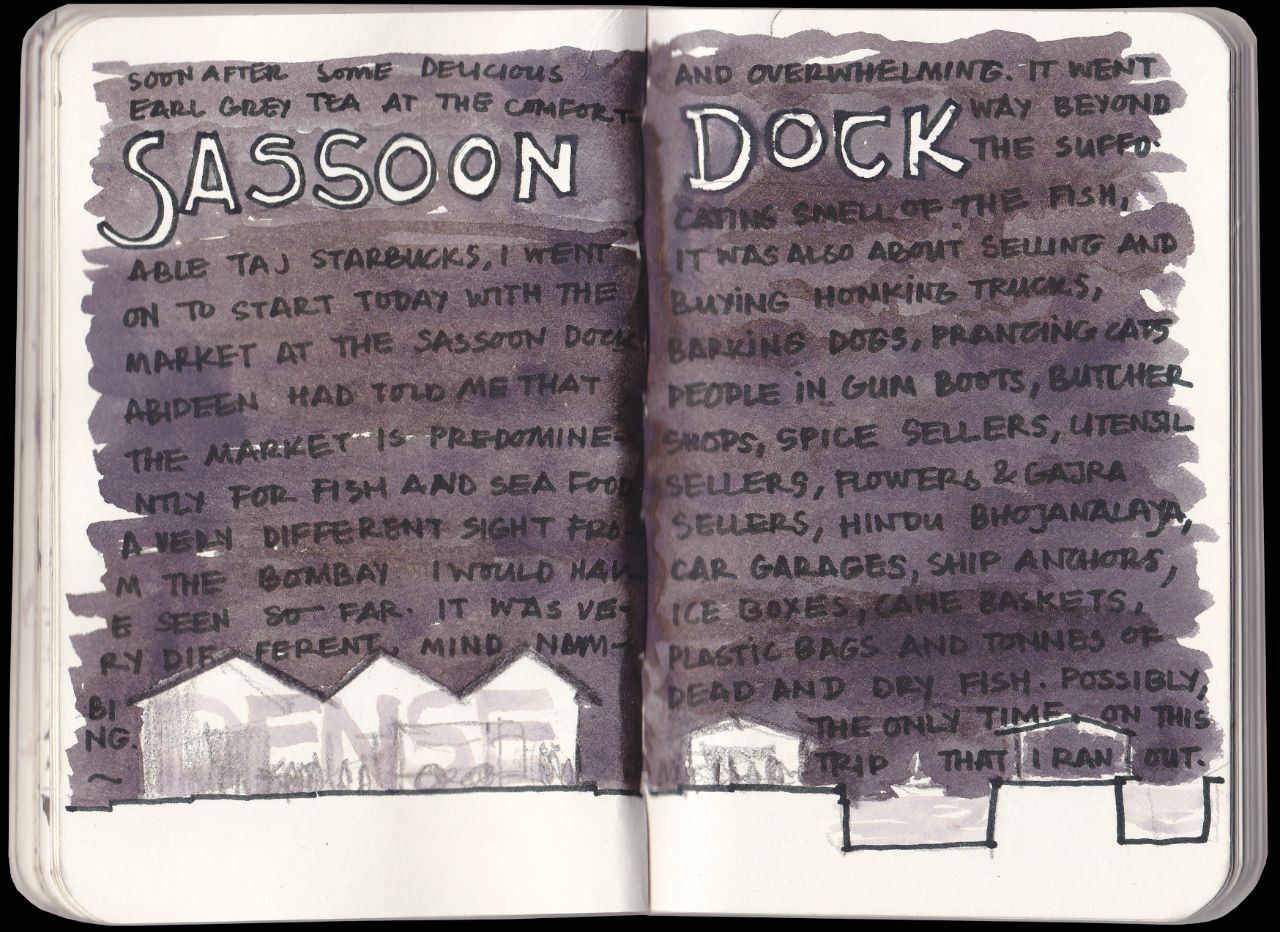 SOON AFTER SOME DELICIOUS
EARL GREY TEA AT THE COMFORT-
SASSOON
ABLE TAJ STARBUCKS, I WENT
ON TO START TODAY WITH THE
MARKET AT THE SASSOON DOCK
ABIDEEN HAD TOLD ME THAT
THE MARKET IS PREDOMINE-
NTLY FOR FISH AND SEA FOOD
A VERY DIFFERENT SIGHT FRO
M THE BOMBAY I WOULD HAV
E SEEN SO FAR. IT WAS VE-
RY DIF FERENT, MIND NUM-
BI
NG.
~
DENSE
AND OVERWHELMING. IT WENT
DOCK
WAY BEYOND
THE SUFFO-
CATING SMELL OF THE FISH,
IT WAS ALSO ABOUT SELLING AND
BUYING HONKING TRUCKS,
BARKING DOGS, PRANCING CATS
PEOPLE IN GUM BOOTS, BUTCHER
SHOPS, SPICE SELLERS, UTENSIL
SELLERS, FLOWERS & GAJRA
SELLERS, HINDU BHOJANALAYA,
CAR GARAGES, SHIP ANCHORS,
ICE BOXES, CANE BASKETS,
PLASTIC BAGS AND TONNES OF
DEAD AND DRY FISH. POSSIBLY,
THE ONLY TIME, ON THIS
TRIP THAT I RAN OUT.